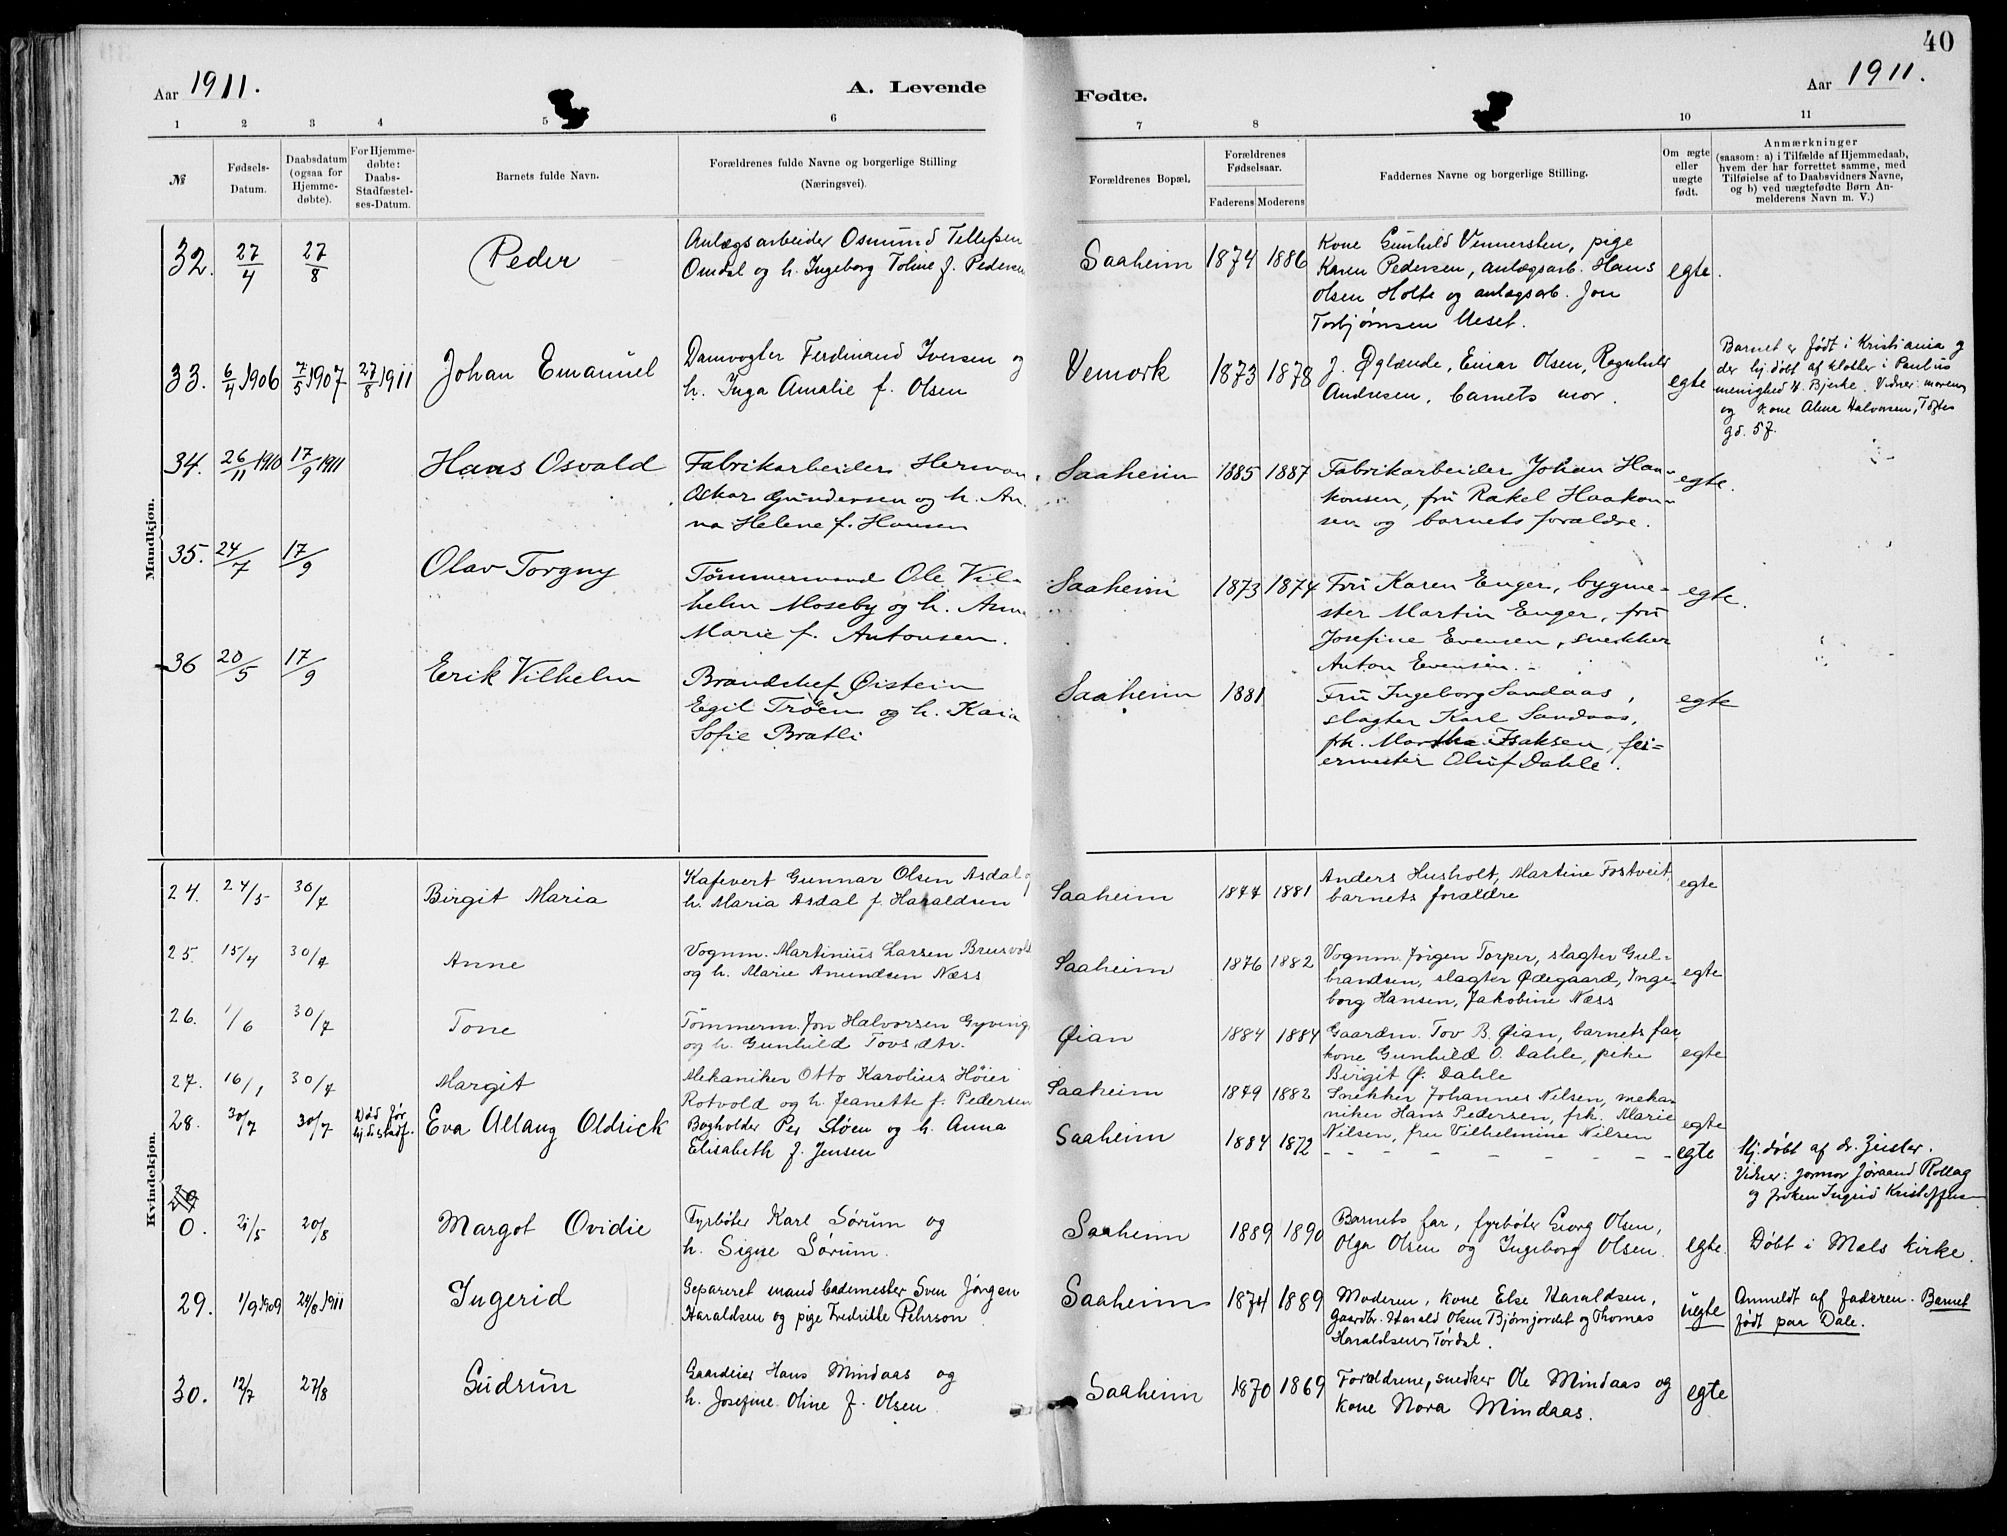 40
Aar 1911.
A. Levende
Fødte.
Aar 1911.
1 2 3 4 5 6 7 8 10 11
№
Fødsels-
Datum.
Daabsdatum
(ogsaa for
Hjemme-
døbte).
For Hjemme-
døbte:
Daabs-
Stadfæstel-
ses-Datum.
Barnets fulde Navn.
Forældrenes fulde Navne og borgerlige Stilling
(Næringsvei).
Forældrenes Bopæl.
Forældrenes
Fødselsaar.
Faderens Moderens
Faddernes Navne og borgerlige Stilling.
Om ægte
eller
uægte
født.
Anmærkninger
(saasom: a) i Tilfælde af Hjemmedaab,
hvem der har forrettet samme, med
Tilføielse af to Daabsvidners Navne,
og b) ved uægtefødte Børn An-
melderens Navn m. V.)
Mandkjøn.
32. 27/4 27/8 Peder
Anlægsarbeider Osmund Tellefsen
Omdal og h. Ingeborg Toline f. Pedersen
Saaheim 1874 1886
Kone Gunhild Vennersten, pige
Karen Pedersen, anlægsarb. Hans
Olsen Holte og anlægsarb. Jon
Torbjørnsen Ueset.
egte.
33. 6/4 1906 7/5 1907 27/8 1911 Johan Emanuel
Damvogter Ferdinand Iversen og
h. Inga Amalie f. Olsen
Vemork 1873 1878
J. Øglænde, Einar Olsen, Ragnhild
Andresen, barnets mor.
egte
Barnet er født i Kristiania og
der hj. døbt af klokker i Paulus
menighed H. Bjerke. Vidner: moren
og kone Alma Halvorsen, Toftes
gd. 57.
34. 26/11 1910 17/9 1911 Hans Osvald
Fabrikarbeider Herman
Oskar Gundersen og h. An-
na Helene f. Hansen
Saaheim 1885 1887
Fabrikarbeider Johan Haa-
konsen, fru Rakel Haakon-
sen og barnets forældre.
egte.
35. 24/7 17/9 Olav Torgny
Tømmermand Ole Vil-
helm Moseby og h. Anna
Marie f. Antonsen.
Saaheim 1873 1874
Fru Karen Enger, bygme-
ster Martin Enger, fru
Josefine Evensen, snekker
Anton Evensen.
egte.
36 20/5 17/9 Erik Vilhelm
Brandchef Øistein
Egil Trøen og h. Kaia
Sofie Bratli
Saaheim 1881
Fru Ingeborg Sandaas,
slagter Karl Sandaas,
frk. Martha Isaksen, fei-
ermester Oluf Dahle.
egte
Kvindekjøn.
24. 24/5 30/7 Birgit Maria
Kafevert Gunnar Olsen Asdal og
h. Maria Asdal f. Haraldsen
Saaheim 1877 1881
Anders Husholt, Martine Fostveit,
barnets forældre
egte
25. 15/4 30/7 Anne
Vognm. Martinius Larsen Brusvold
og h. Marie Amundsen Næss
Saaheim 1876 1882
Vognm. Jørgen Torper, slagter Gul-
brandsen, slagter Ødegaard, Inge-
borg Hansen, Jakobine Næss
egte
26. 1/6 30/7 Tone
Tømmerm. Jon Halvorsen Gyving
og h. Gunhild Tovsdtr.
Øian 1884 1884
Gaardm. Tov B. Øian, barnets far,
kone Gunhild O. Dahle, pike
Birgit Ø. Dahle
egte
27. 16/1 30/7 Margit
Mekaniker Otto Karolius Høier
Rotvold og h. Jeanette f. Pedersen
Saaheim 1879 1882
Snekker Johannes Nilsen, meka-
niker Hans Pedersen, frk. Marie
Nilsen, fru Vilhelmine Nilsen
egte
28. 30/7 30/7 Død før
hj. d. stadf. Eva Allaug Oldrick
Bogholder Per Støen og h. Anna
Elisabeth f. Jensen
Saaheim 1884 1872
- - - - - - - -
egte
Hj. døbt af dr. Zeister.
Vidner: jormor Jøraand Rollag
og frøken Ingrid Kristoffersen
0. 21/5 20/8 Margot Ovidie
Fyrbøter Karl Sørum og
h. Signe Sørum.
Saaheim 1889 1890
Barnets far, fyrbøter Georg Olsen,
Olga Olsen og Ingeborg Olsen.
egte.
Døbt i Mæls kirke.
29. 1/9 1909 24/8 1911 Ingerid
Separeret mand bademester Sven Jørgen
Haraldsen og pige Fredrikke Pehrson.
Saaheim 1874 1889
Moderen, kone Else Haraldsen,
Gaardbr. Harald Olsen Bjørnjordet og Thomas
Haraldsen, Tørdal.
uegte
Anmeldt af faderen. Barnet
født paa Dale.
30. 12/7 27/8 Gudrun
Gaardeier Hans Mindaas og
h. Josefine Oline f. Olsen.
Saaheim 1870 1869
Forældrene, snedker Ole Mindaas og
kone Nora Mindaas.
egte